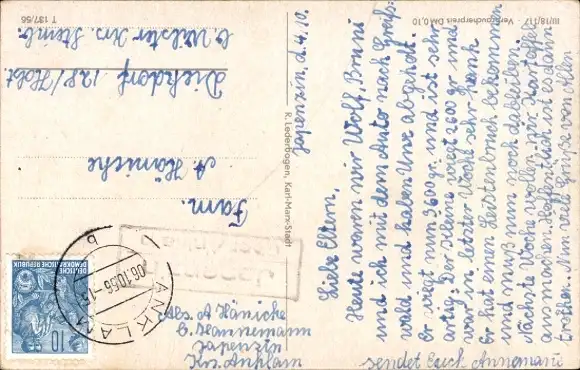 Japenzin, d. 4.10.
Liebe Eltern,
Heute waren wir Wolf, Bruni
und ich mit dem Auto nach Greifs-
wald und haben Uwe abgeholt.
Er wiegt nun 3600 gr. und ist sehr
artig. Der Kleine wiegt 2600 gr und
war in letzter Woche sehr krank
Er hat einen Leistenbruch bekommen
und muß nun noch dableiben.
Nächste Woche wollen wir Kartoffel
ausmachen. Hoffentlich ist es dann
trocken. Nun viele Grüße von Allen
sendet Euch Annemarie
III/18/117 Verbraucherpreis DM 0,10
T 137/56
R. Lederbogen, Karl-Marx-Stadt
Fam.
A. Hänicke
Diekdorf 128 /Holst.
b. Wilster Krs. Steinb.
Abs. A Hänicke
b. Hannemann
Japenzin
Krs. Anklam
DEUTSCHE
DEMOKRATISCHE REPUBLIK
10
ANKLAM
06.10.56
b
Japenzin